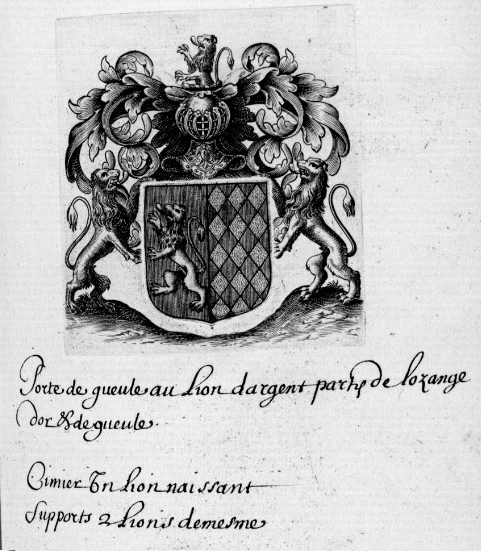 Porte de gueule au lion dargent party de lozange
dor & de gueule.
Cimier Un lion naissant
Supports 2 lions demesme